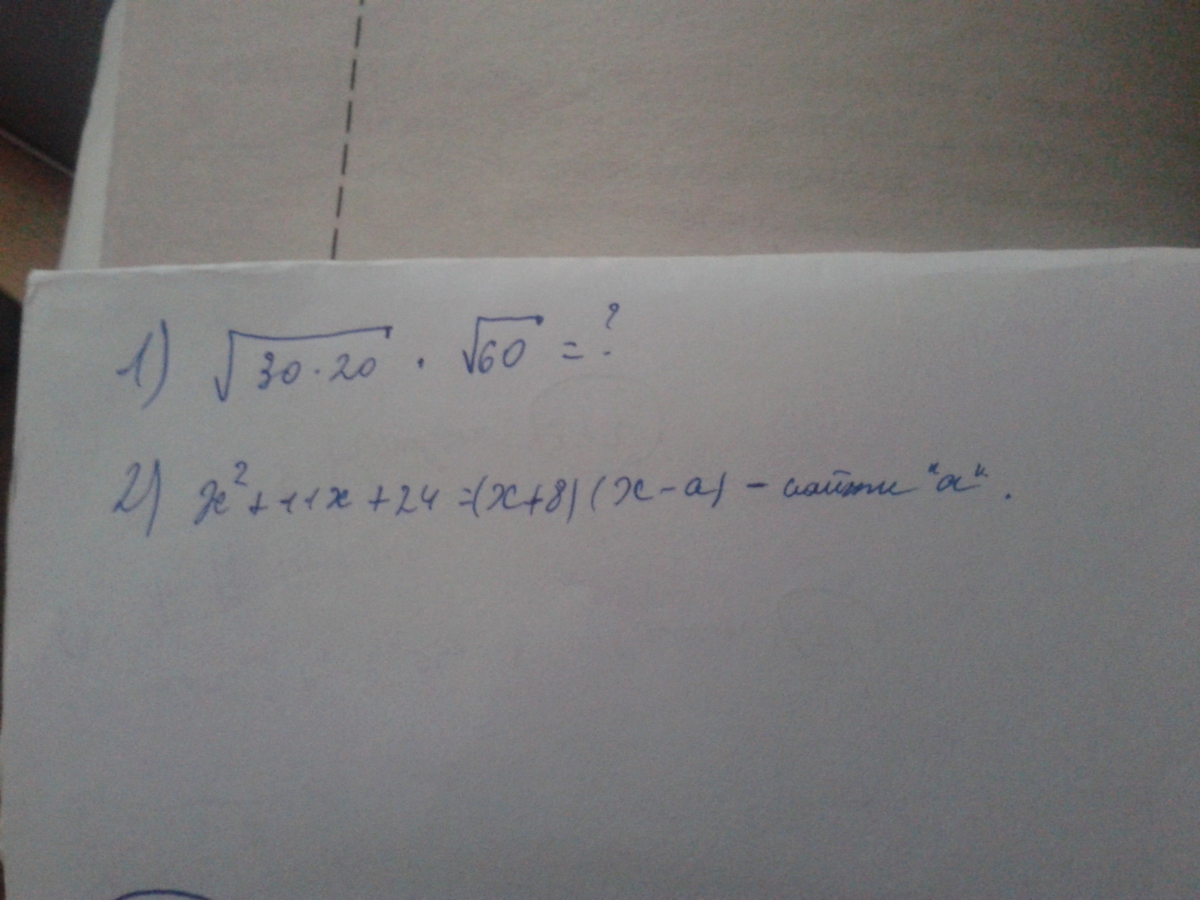 1) √30·20 · √60 = ?
2) x² + 11x + 24 = (x+8)(x-a) - найти "a".